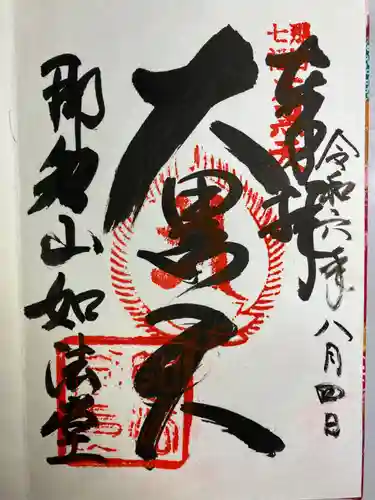 奉拝
令和六年
八月四日
大黒天
那智山如法堂